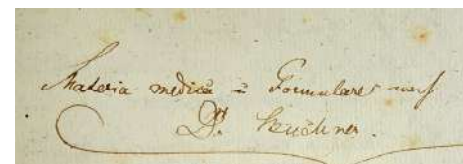 Materia medica = Formulare nach
Dr. Buchner.